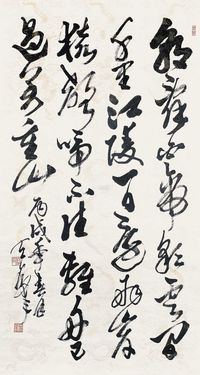 朝辭白帝彩雲間
千里江陵一日還兩岸
猿聲啼不住輕舟已
過萬重山
丙戌年春月